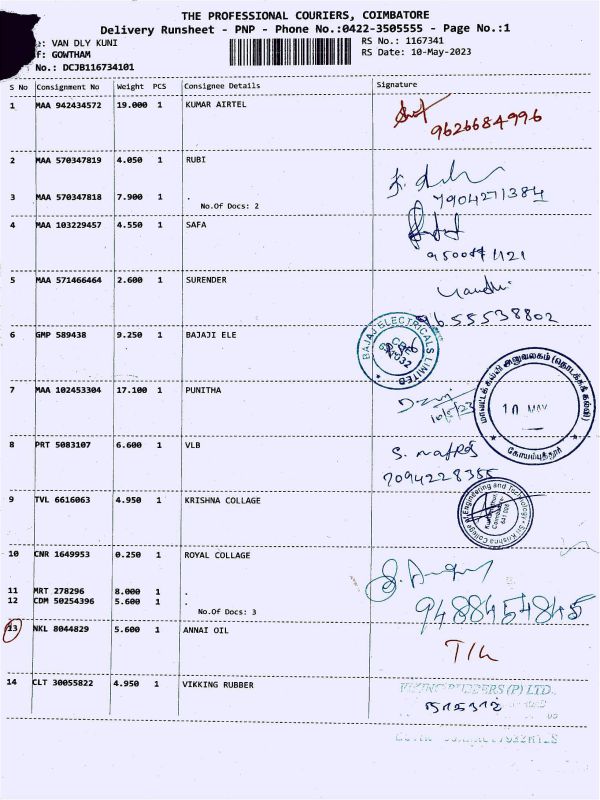 THE PROFESSIONAL COURIERS, COIMBATORE
Delivery Runsheet - PNP - Phone No.:0422-3505555 - Page No.:1
: VAN DLY KUNI
RS No.: 1167341
f: GOWTHAM
RS Date: 10-May-2023
No.: DCJB116734101
S No Consignment No Weight PCS Consignee Details Signature
1 MAA 942434572 19.000 1 KUMAR AIRTEL
9626684996
2 MAA 570347819 4.050 1 RUBI
3 MAA 570347818 7.900 1 .
No.Of Docs: 2
7904271384
4 MAA 103229457 4.550 1 SAFA
5 MAA 571466464 2.600 1 SURENDER
9655538802
6 GMP 589438 9.250 1 BAJAJI ELE
BAJAJ ELECTRICALS LIMITED
7 MAA 102453304 17.100 1 PUNITHA
10/5/23
மாவட்டக் கல்வி அலுவலகம் (தொடக்கக் கல்வி)
10 MAY
கோயம்புத்தூர்
8 PRT 5083107 6.600 1 VLB
7094228355
9 TVL 6616063 4.950 1 KRISHNA COLLAGE
Sri Krishna College of Engineering and Technology
Coimbatore
10 CNR 1649953 0.250 1 ROYAL COLLAGE
11 MRT 278296 8.000 1 .
12 CDM 50254396 5.600 1 .
No.Of Docs: 3
9488454845
13 NKL 8044829 5.600 1 ANNAI OIL
14 CLT 30055822 4.950 1 VIKKING RUBBER
(P) LTD.